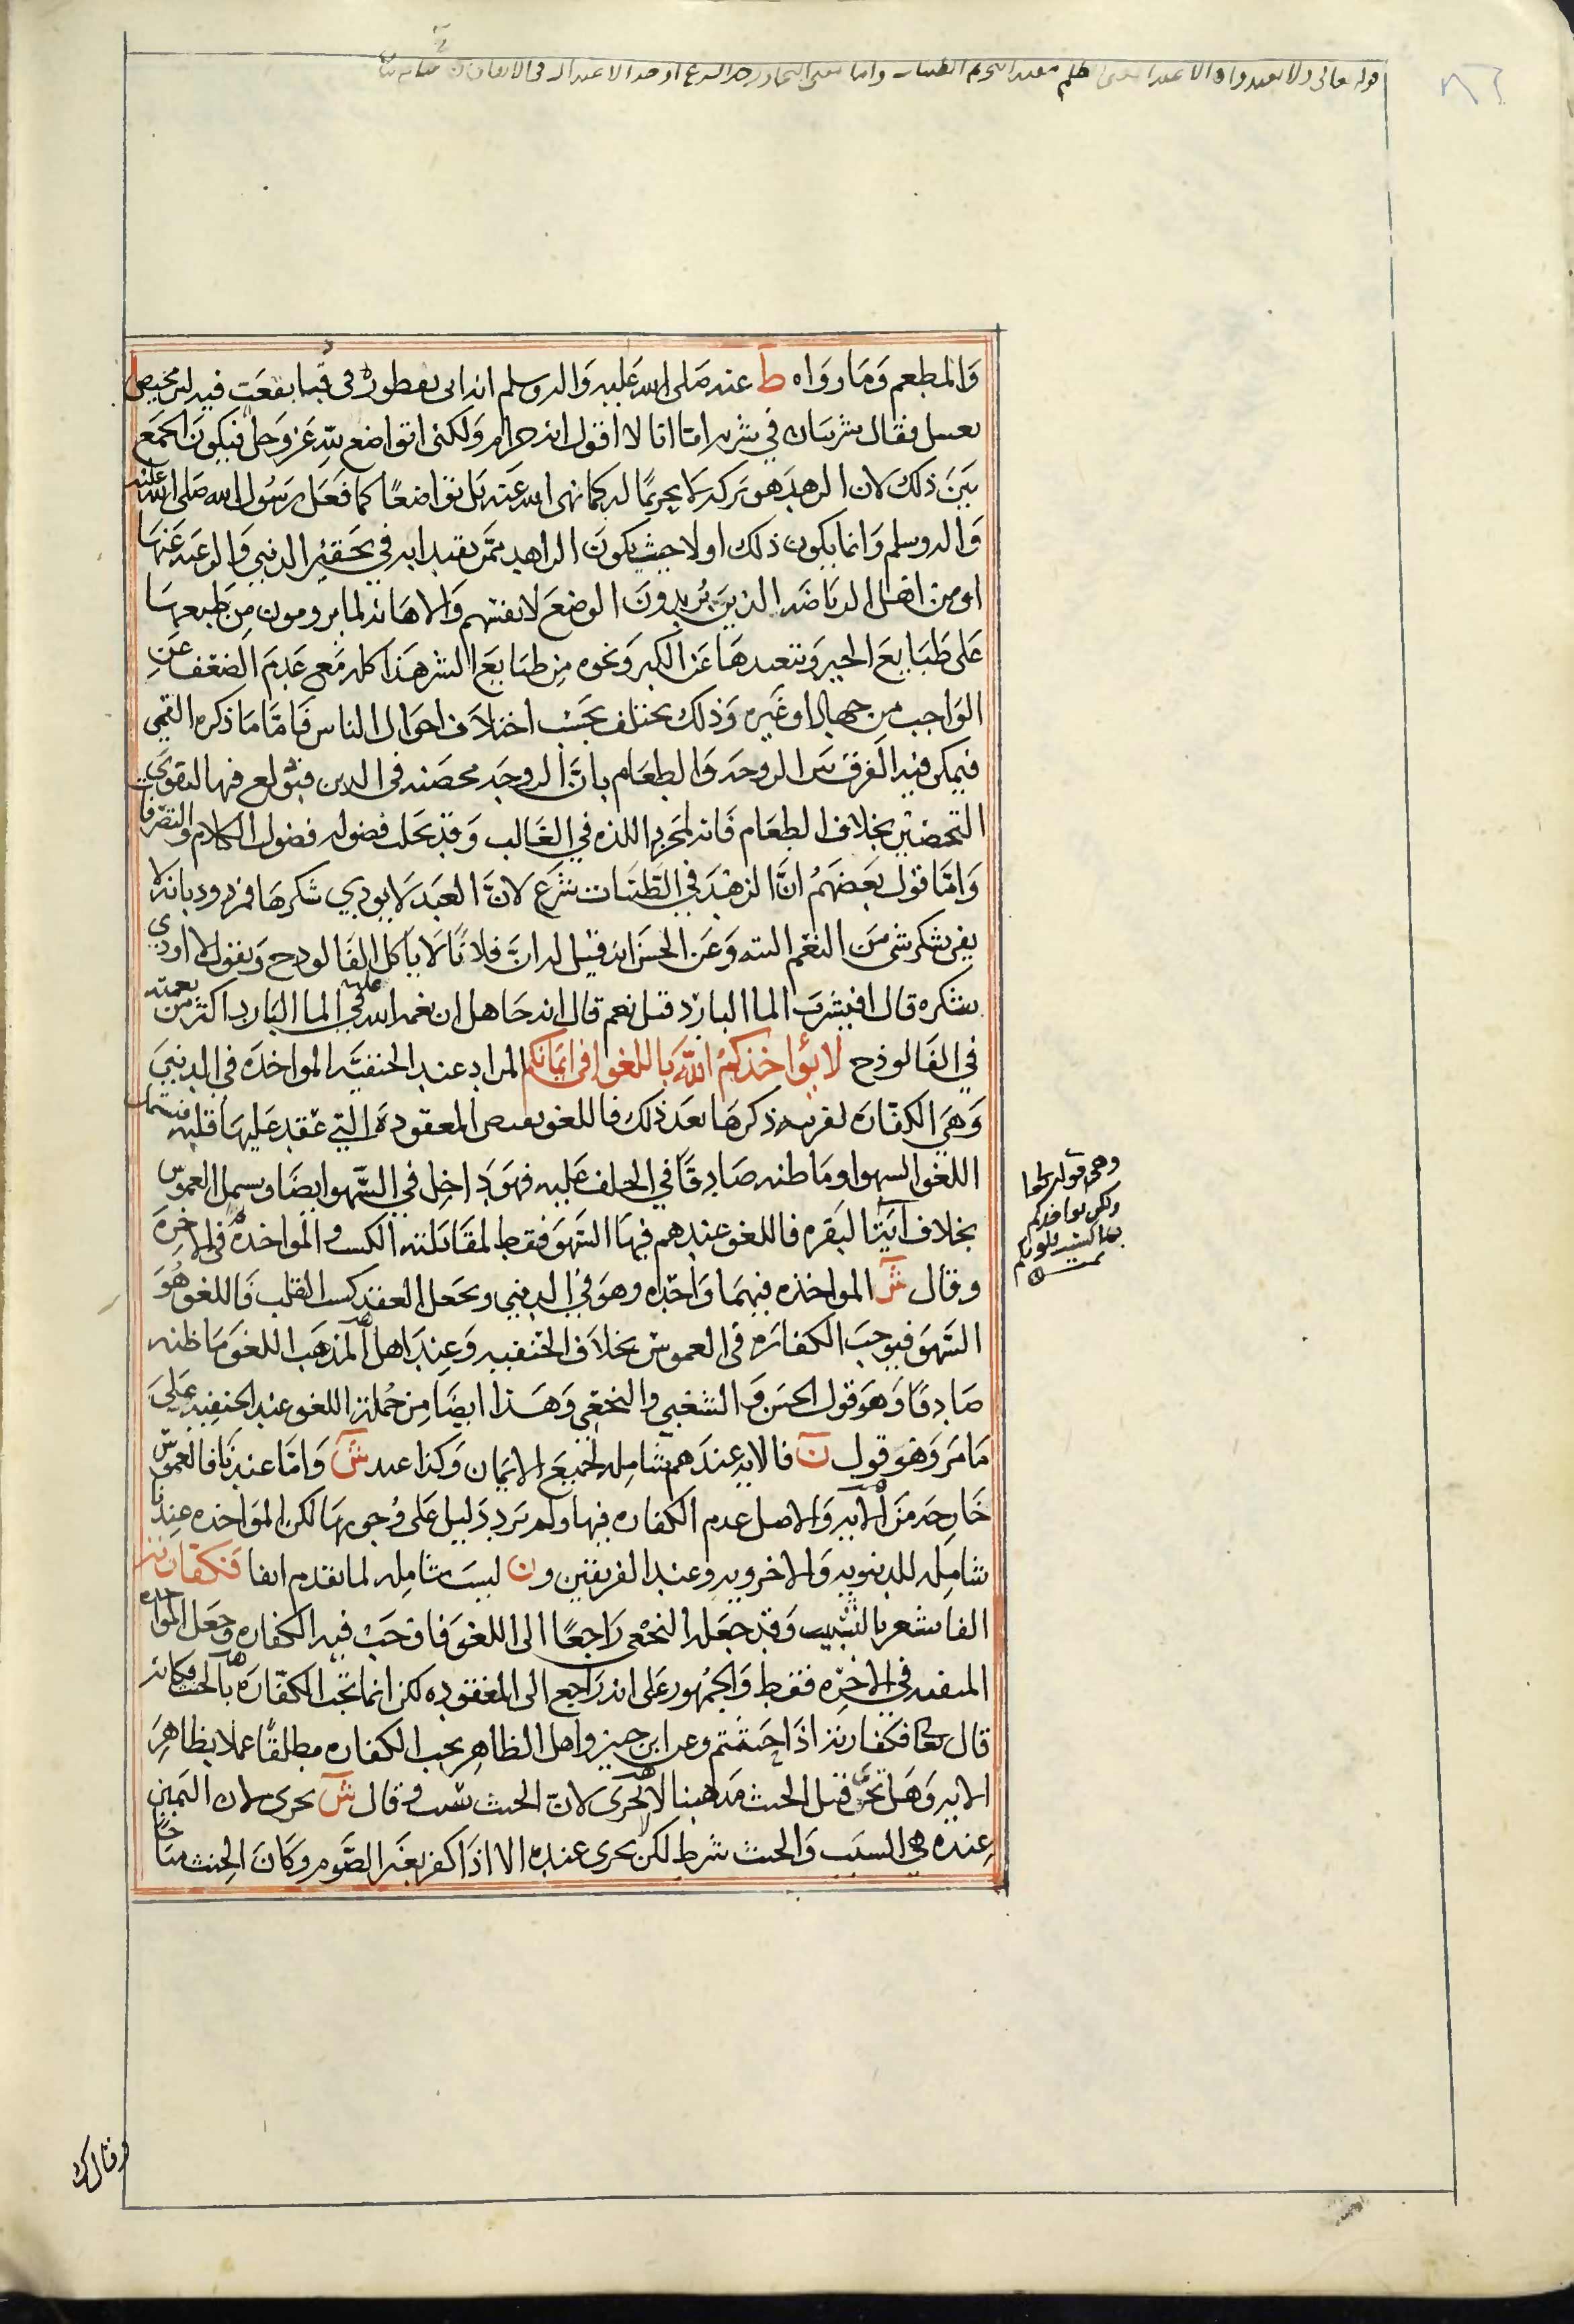 قوله تعالى ولا تعتدوا
والمطعم وما رواه ط عنه صلى الله عليه واله وسلم انه اتى بفطوره في قبا بقعب فيه لبن مخيض
بعسل فقال شربتان في شربه اما انا لا اقول انه حرام ولكني اتواضع لله عز وجل فيكون الجمع
بين ذلك لان الزهد هو تركه لا تحريما له كما نهى الله عنه بل تواضعا كما فعل رسول الله صلى الله عليه
واله وسلم وانما يكون ذلك اولا حيث يكون الزاهد ممن يقتدا به في تحقير الدنيى والرغبه عنها
او من اهل الرياضه الذين يريدون الوضع لانفسهم والاهانه لما يرومون من طبعها
على طبايع الخير وتبعيدها عن الكبر ونحوه من طبايع الشر هذا كله مع عدم الضعف عن
الواجب من جهاد او غيره وذلك يختلف بحسب اختلاف احوال الناس فاما ما ذكره القمي
فيمكن فيه الفرق بين الزوجه والطعام بان الزوجه محصنه في الدين فيولع فيها لتقوى
التحصين بخلاف الطعام فانه لمجرد اللذه في الغالب وقد تحلت فضوله فضول الكلام والتصرفات
واما قول بعضهم ان الزهد في الطيبات شرع لان العبد لا يودي شكرها فمردود بانه لا
يفي بشكر شي من النعم البته وعن الحسن انه قيل له ان فلانا لا ياكل الفالوذج ويقول لا اودي
شكره قال افيشرب الما البارد قيل نعم قال انه جاهل ان نعمه الله عليه في الما البارد اكثر من نعمته
في الفالوذج لا يؤاخذكم الله باللغو في ايمانكم المراد عند الحنفيه المواخذه في الدنيى
وهي الكفاره لقرينه ذكرها بعد ذلك فاللغو نقيض المعقوده التي عقد عليها قلبه فيشمل
اللغو السهو او ما ظنه صادقا في الحلف عليه فهو داخل في السهو ايضا ويشمل الغموس
بخلاف آيتا البقره فاللغو عندهم فيها السهو فقط لمقابلته الكسب والمواخذه في الاخره
وقال ش المواخذه فيهما واحده وهو في الدنيى ويجعل العقد كسب القلب فاللغو هو
السهو فيوجب الكفاره في الغموس بخلاف الحنفيه وعند اهل المذهب اللغو ما ظنه
صادقا وهو قول الحسن والشعبي والنخعي وهذا ايضا من جملة اللغو عند الحنفيه على
ما مر وهو قول ن فالايه عندهم شامله لجميع الايمان وكذا عند ش واما عندنا فالغموس
خارجه من الايه والاصل عدم الكفاره فيها ولم يرد دليل على وجوبها لكن المواخذه عندنا
شامله للدنيويه والاخرويه وعند الفريقين ون ليست شامله لما تقدم انفا فكفارته
الفا مشعر بالتسبيب وقد جعله النخعي راجعا الى اللغو فاوجب فيه الكفاره وجعل المواخذه
المنفيه في الاخره فقط والجمهور على انه راجع الى المعقوده لكن انما تجب الكفاره بالحنث فكانه
قال تعا فكفارته اذا حنثتم وعن ابن جبير واهل الظاهر تجب الكفاره مطلقا عملا بظاهر
الايه وهل تجزي قبل الحنث مذهبنا لا تجزي لان الحنث سبب وقال ش تجزي لان اليمين
عنده هي السبب والحنث شرط لكن تجزي عنده الا اذا كفر بغير الصوم وكان الحنث مباحا
وهي قوله تعا
ولكن يواخذكم
بما كسبت قلوبكم
تمت
وقال ك